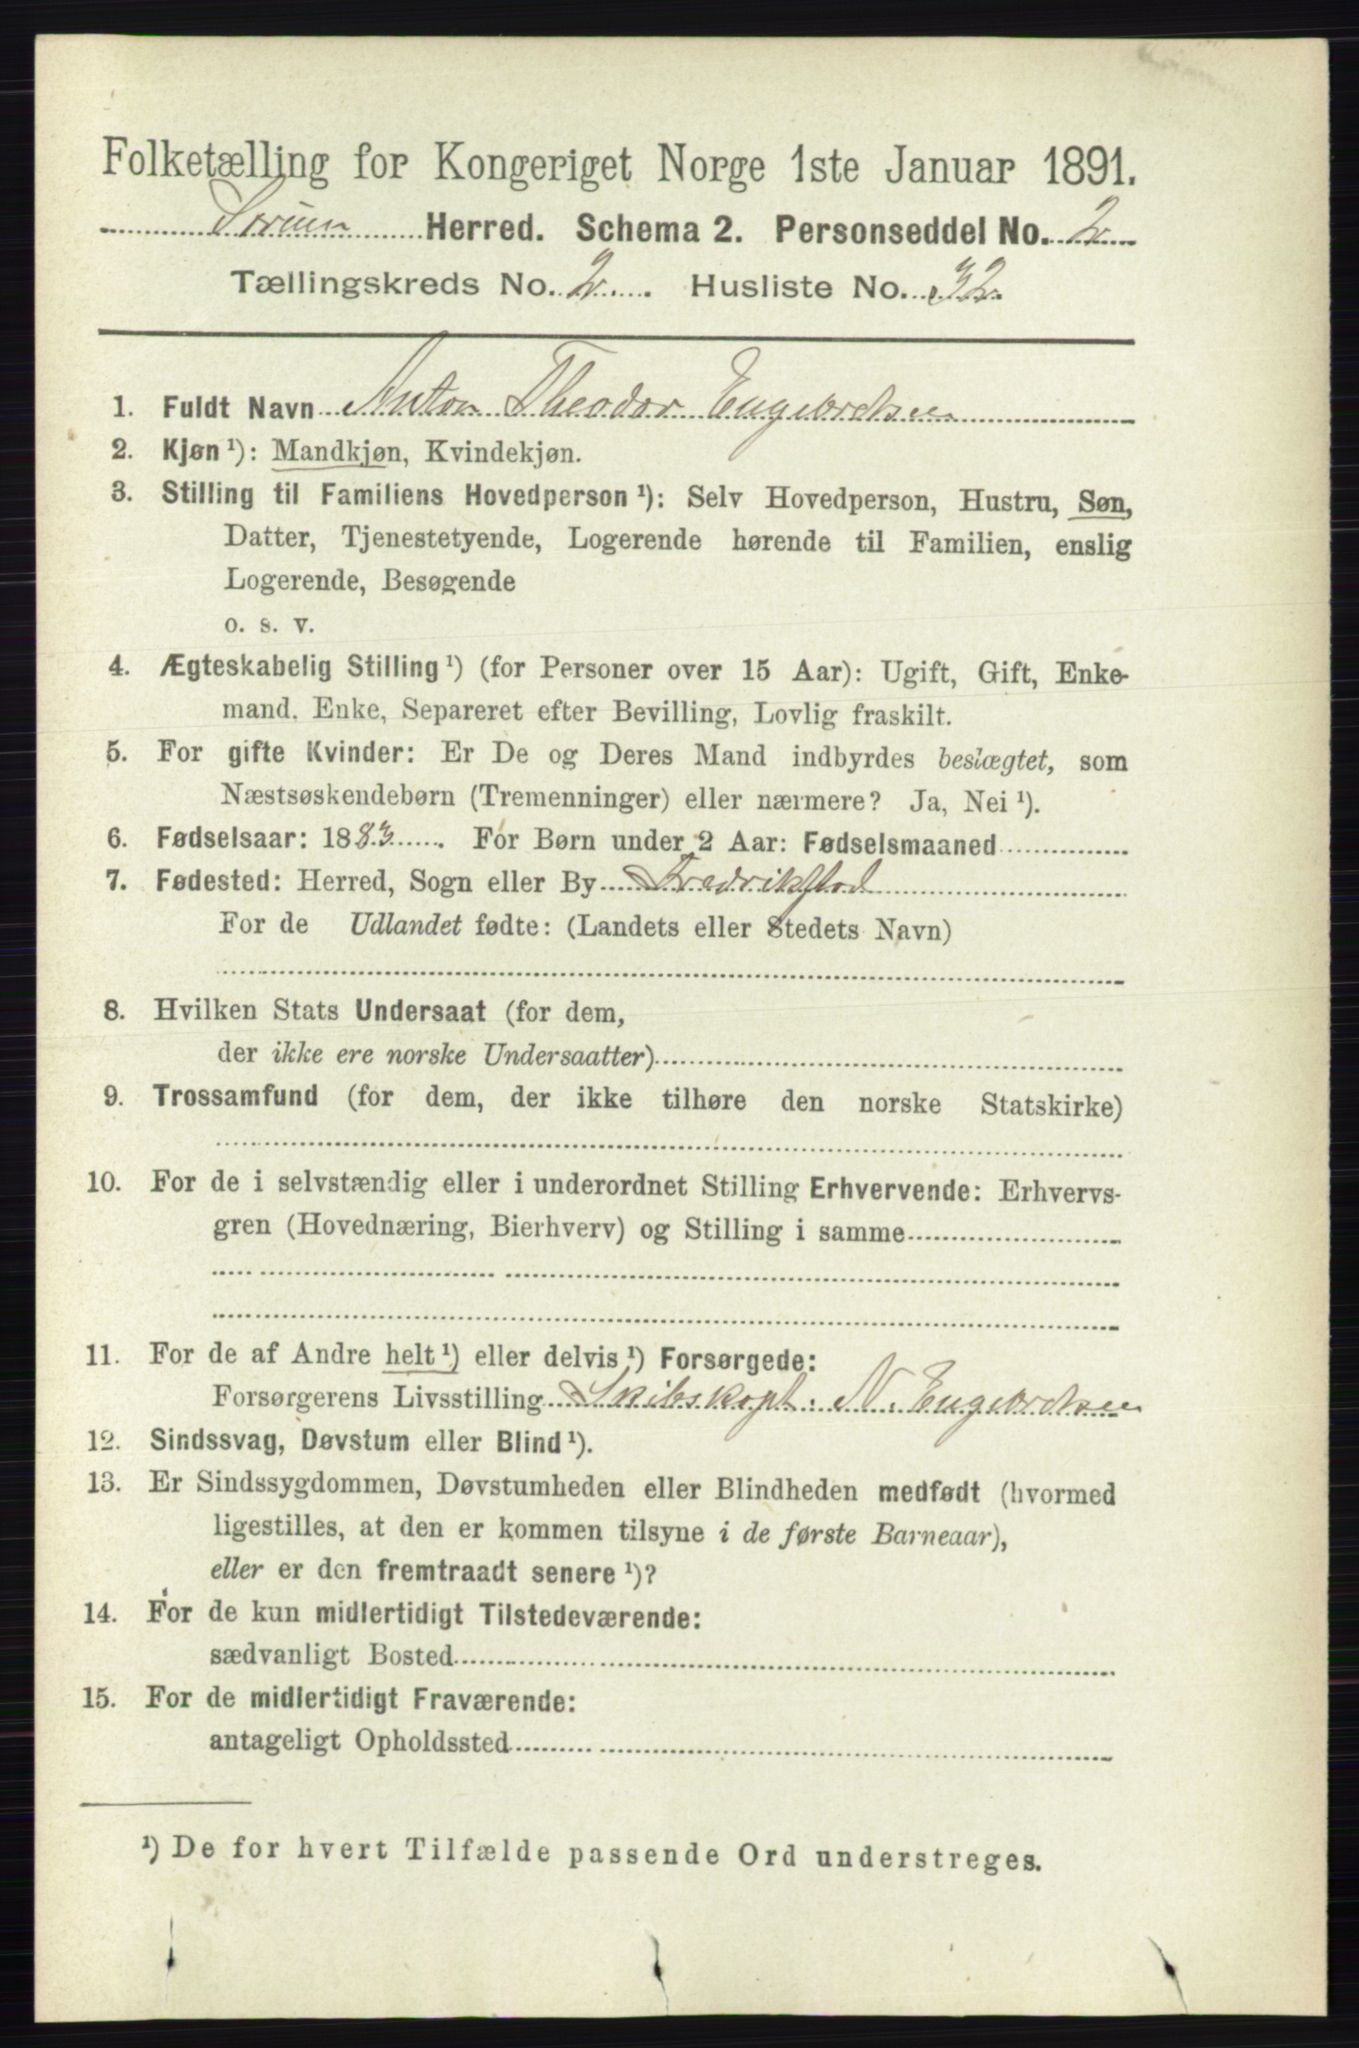 Folketælling for Kongeriget Norge 1ste Januar 1891.
Sørum Herred. Schema 2. Personseddel No. 2
Tællingskreds No. 2. Husliste No. 32.
1. Fuldt Navn Anton Theodor Engebretsen
2. Kjøn ¹): Mandkjøn, Kvindekjøn.
3. Stilling til Familiens Hovedperson ¹): Selv Hovedperson, Hustru, Søn,
Datter, Tjenestetyende, Logerende hørende til Familien, enslig
Logerende, Besøgende
o. s. v.
4. Ægteskabelig Stilling ¹) (for Personer over 15 Aar): Ugift, Gift, Enke-
mand, Enke, Separeret efter Bevilling, Lovlig fraskilt.
5. For gifte Kvinder: Er De og Deres Mand indbyrdes beslægtet, som
Næstsøskendebørn (Tremenninger) eller nærmere? Ja, Nei ¹).
6. Fødselsaar: 1883. For Børn under 2 Aar: Fødselsmaaned
7. Fødested: Herred, Sogn eller By Fredrikstad
For de Udlandet fødte: (Landets eller Stedets Navn)
8. Hvilken Stats Undersaat (for dem,
der ikke ere norske Undersaatter)
9. Trossamfund (for dem, der ikke tilhøre den norske Statskirke)
10. For de i selvstændig eller i underordnet Stilling Erhvervende: Erhvervs-
gren (Hovednæring, Bierhverv) og Stilling i samme
11. For de af Andre helt ¹) eller delvis ¹) Forsørgede:
Forsørgerens Livsstilling Skibskapt. N. Engebretsen
12. Sindssvag, Døvstum eller Blind ¹).
13. Er Sindssygdommen, Døvstumheden eller Blindheden medfødt (hvormed
ligestilles, at den er kommen tilsyne i de første Barneaar),
eller er den fremtraadt senere ¹)?
14. For de kun midlertidigt Tilstedeværende:
sædvanligt Bosted
15. For de midlertidigt Fraværende:
antageligt Opholdssted
¹) De for hvert Tilfælde passende Ord understreges.